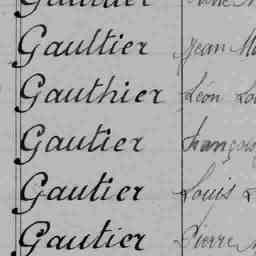 Gaultier Jean
Gauthier Léon
Gautier François
Gautier Louis
Gautier Pierre